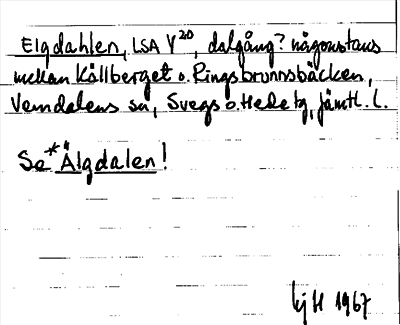 Elgdahlen, LSA V 20, dalgång? någonstans
mellan Kållberget o. Ringsbrunnsbäcken,
Vemdalens sn, Svegs o. Hede tg, Jämtl. l.
Se *Älgdalen!
1967